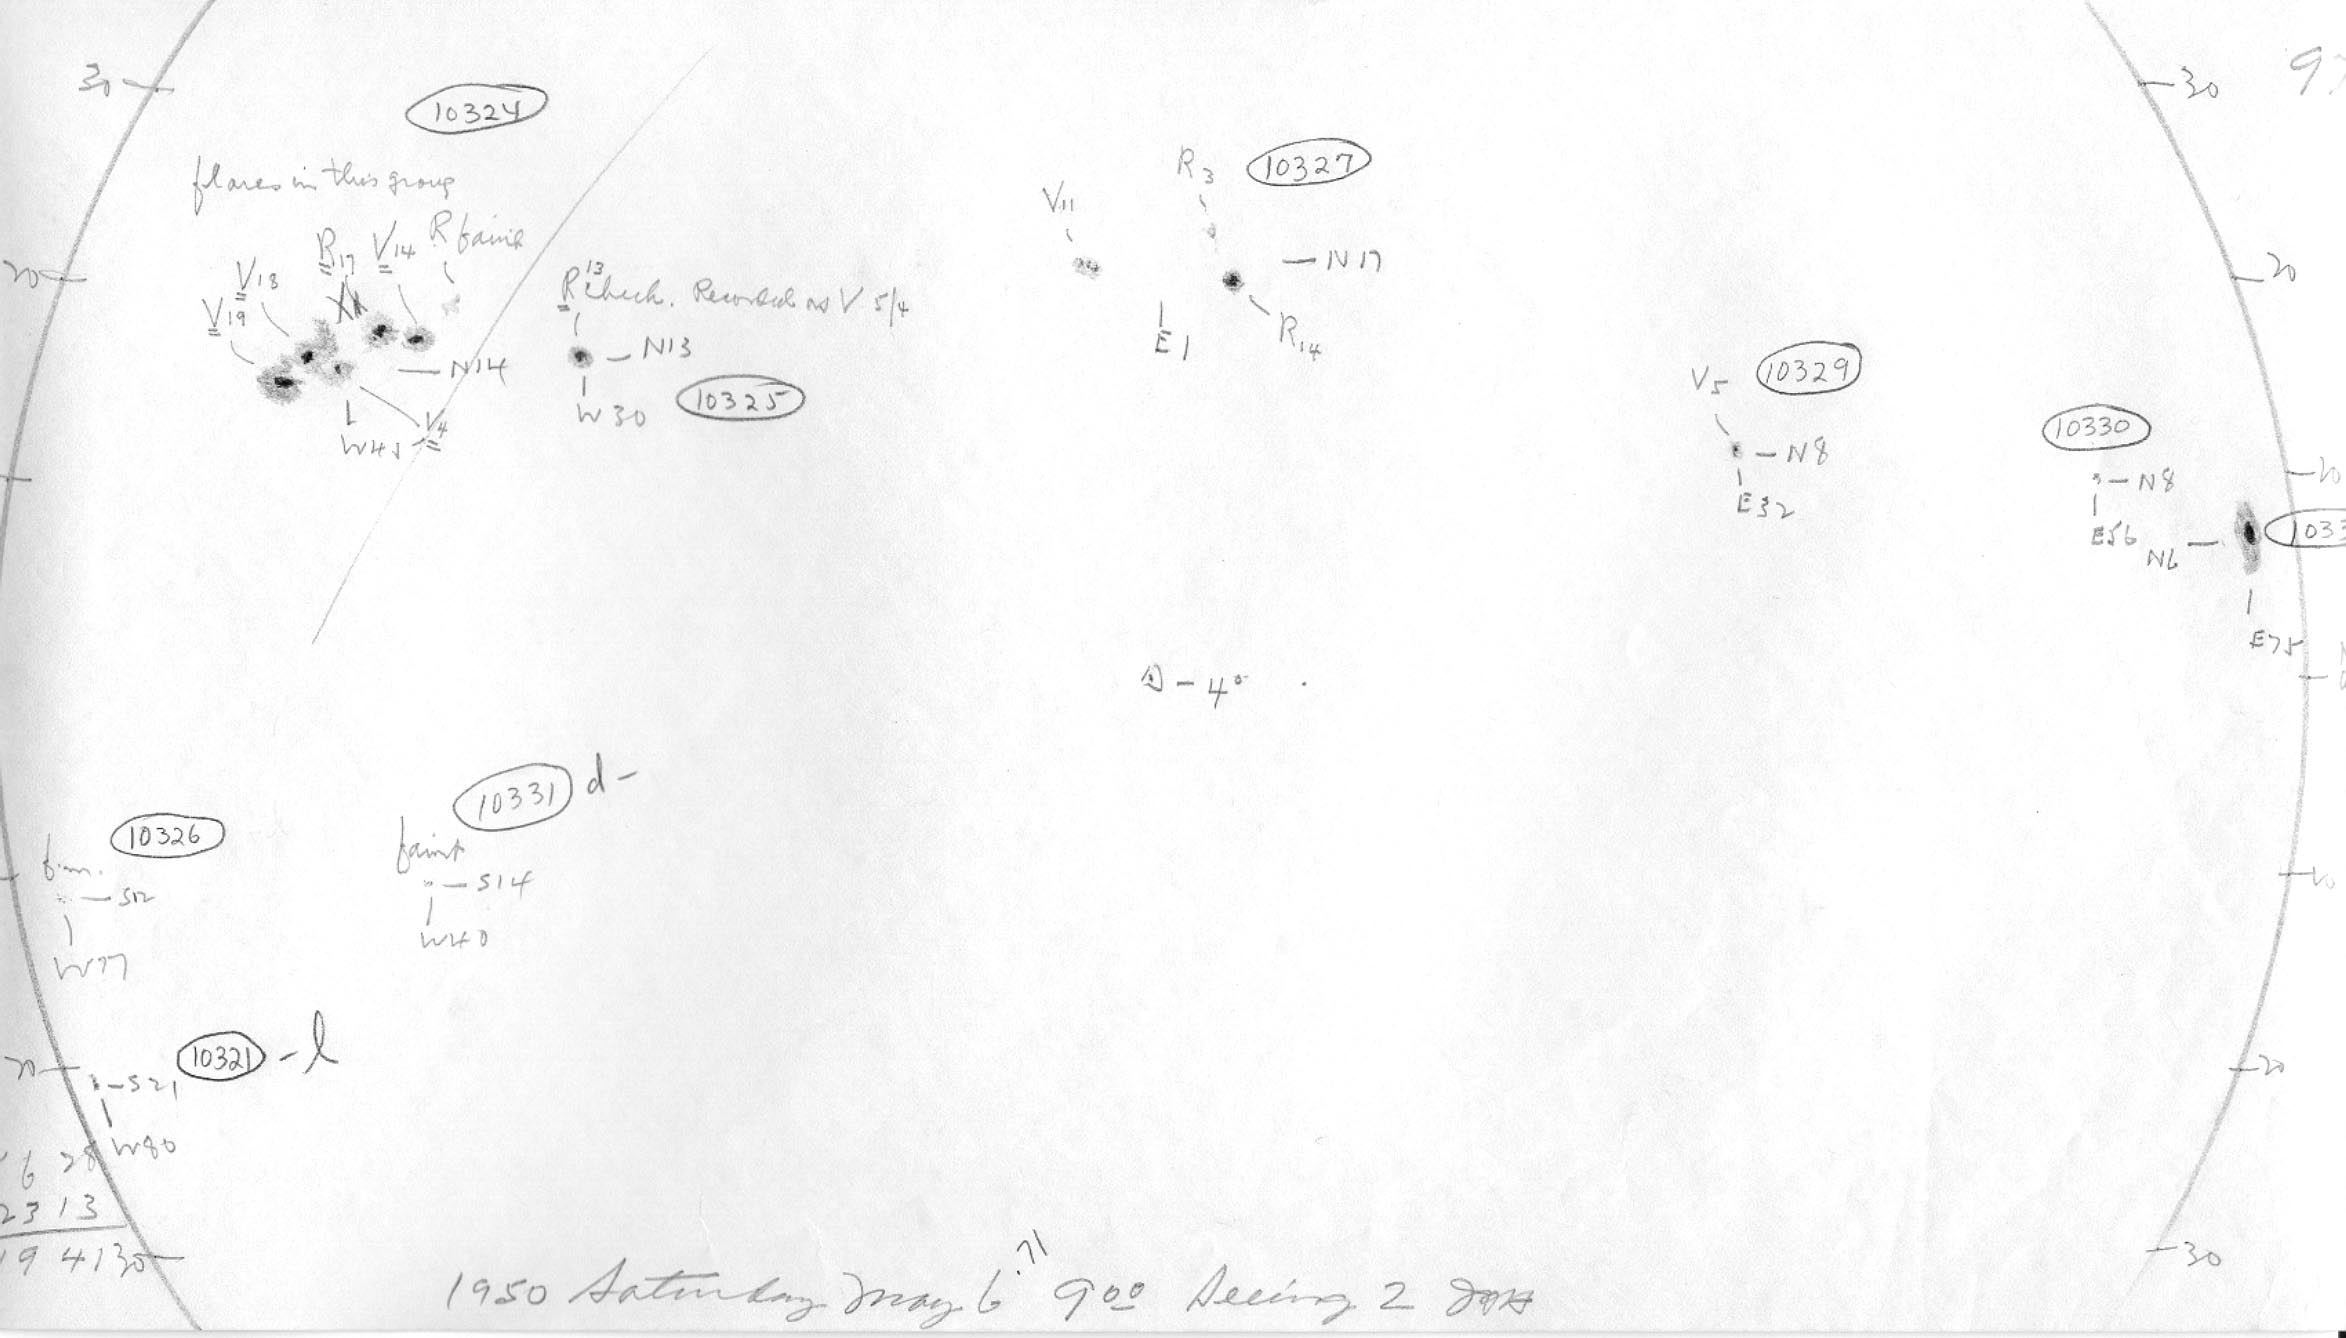 30
10324
flares in this group
R17 V14 R faint
V18
V19
N14
W45 V4
20
R13 check. Recorded as V 5/4
N13
W30
10325
R3 10327
V11
N17
E1
R14
V5 10329
N8
E32
10330
N8
E56
N6
E75
30
20
10
- 4°
10326
S12
W77
10331 d-
faint
S14
W40
20
10321 - l
S21
W80
6 28
23 13
19 41
30
10
20
30
.71
1950 Saturday May 6 9 00 Seeing 2